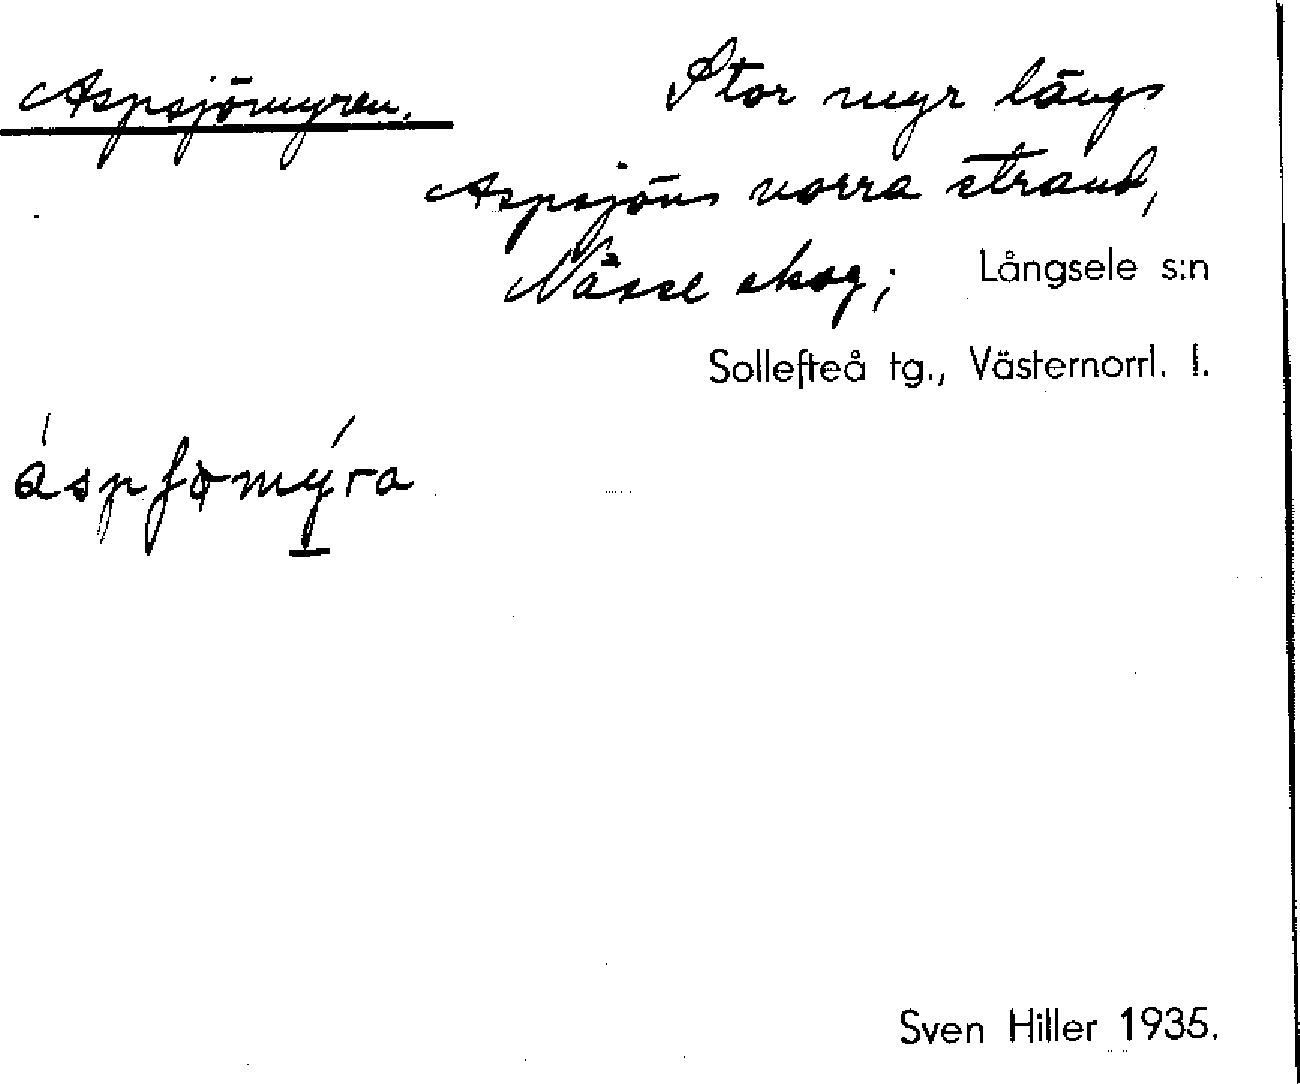 Aspsjömyren. Stor myr längs
Aspsjöns norra strand,
Nässe skog; Långsele s:n
Sollefteå tg., Västernorrl. l.
áspʃɵmýra
Sven Hiller 1935.